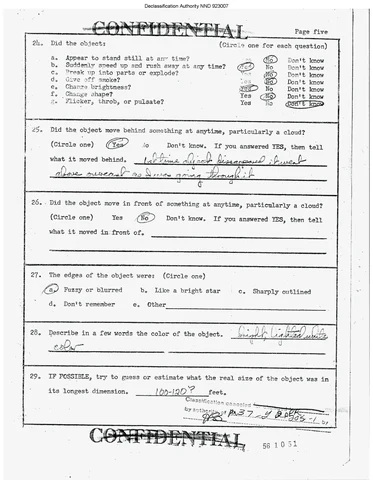 Declassification Authority NND 923007
CONFIDENTIAL
Page five
24. Did the object: (Circle one for each question)
a. Appear to stand still at any time? Yes No Don't know
b. Suddenly speed up and rush away at any time? Yes No Don't know
c. Break up into parts or explode? Yes No Don't know
d. Give off smoke? Yes No Don't know
e. Change brightness? Yes No Don't know
f. Change shape? Yes No Don't know
g. Flicker, throb, or pulsate? Yes No Don't know
25. Did the object move behind something at anytime, particularly a cloud?
(Circle one) Yes No Don't know. If you answered YES, then tell
what it moved behind. object disappeared it went
above overcast as I was going through it
26. Did the object move in front of something at anytime, particularly a cloud?
(Circle one) Yes No Don't know. If you answered YES, then tell
what it moved in front of.
27. The edges of the object were: (Circle one)
a. Fuzzy or blurred b. Like a bright star c. Sharply outlined
d. Don't remember e. Other
28. Describe in a few words the color of the object. bright lighted white
color
29. IF POSSIBLE, try to guess or estimate what the real size of the object was in
its longest dimension. 100-120? feet.
Classification cancelled
by authority of
CONFIDENTIAL